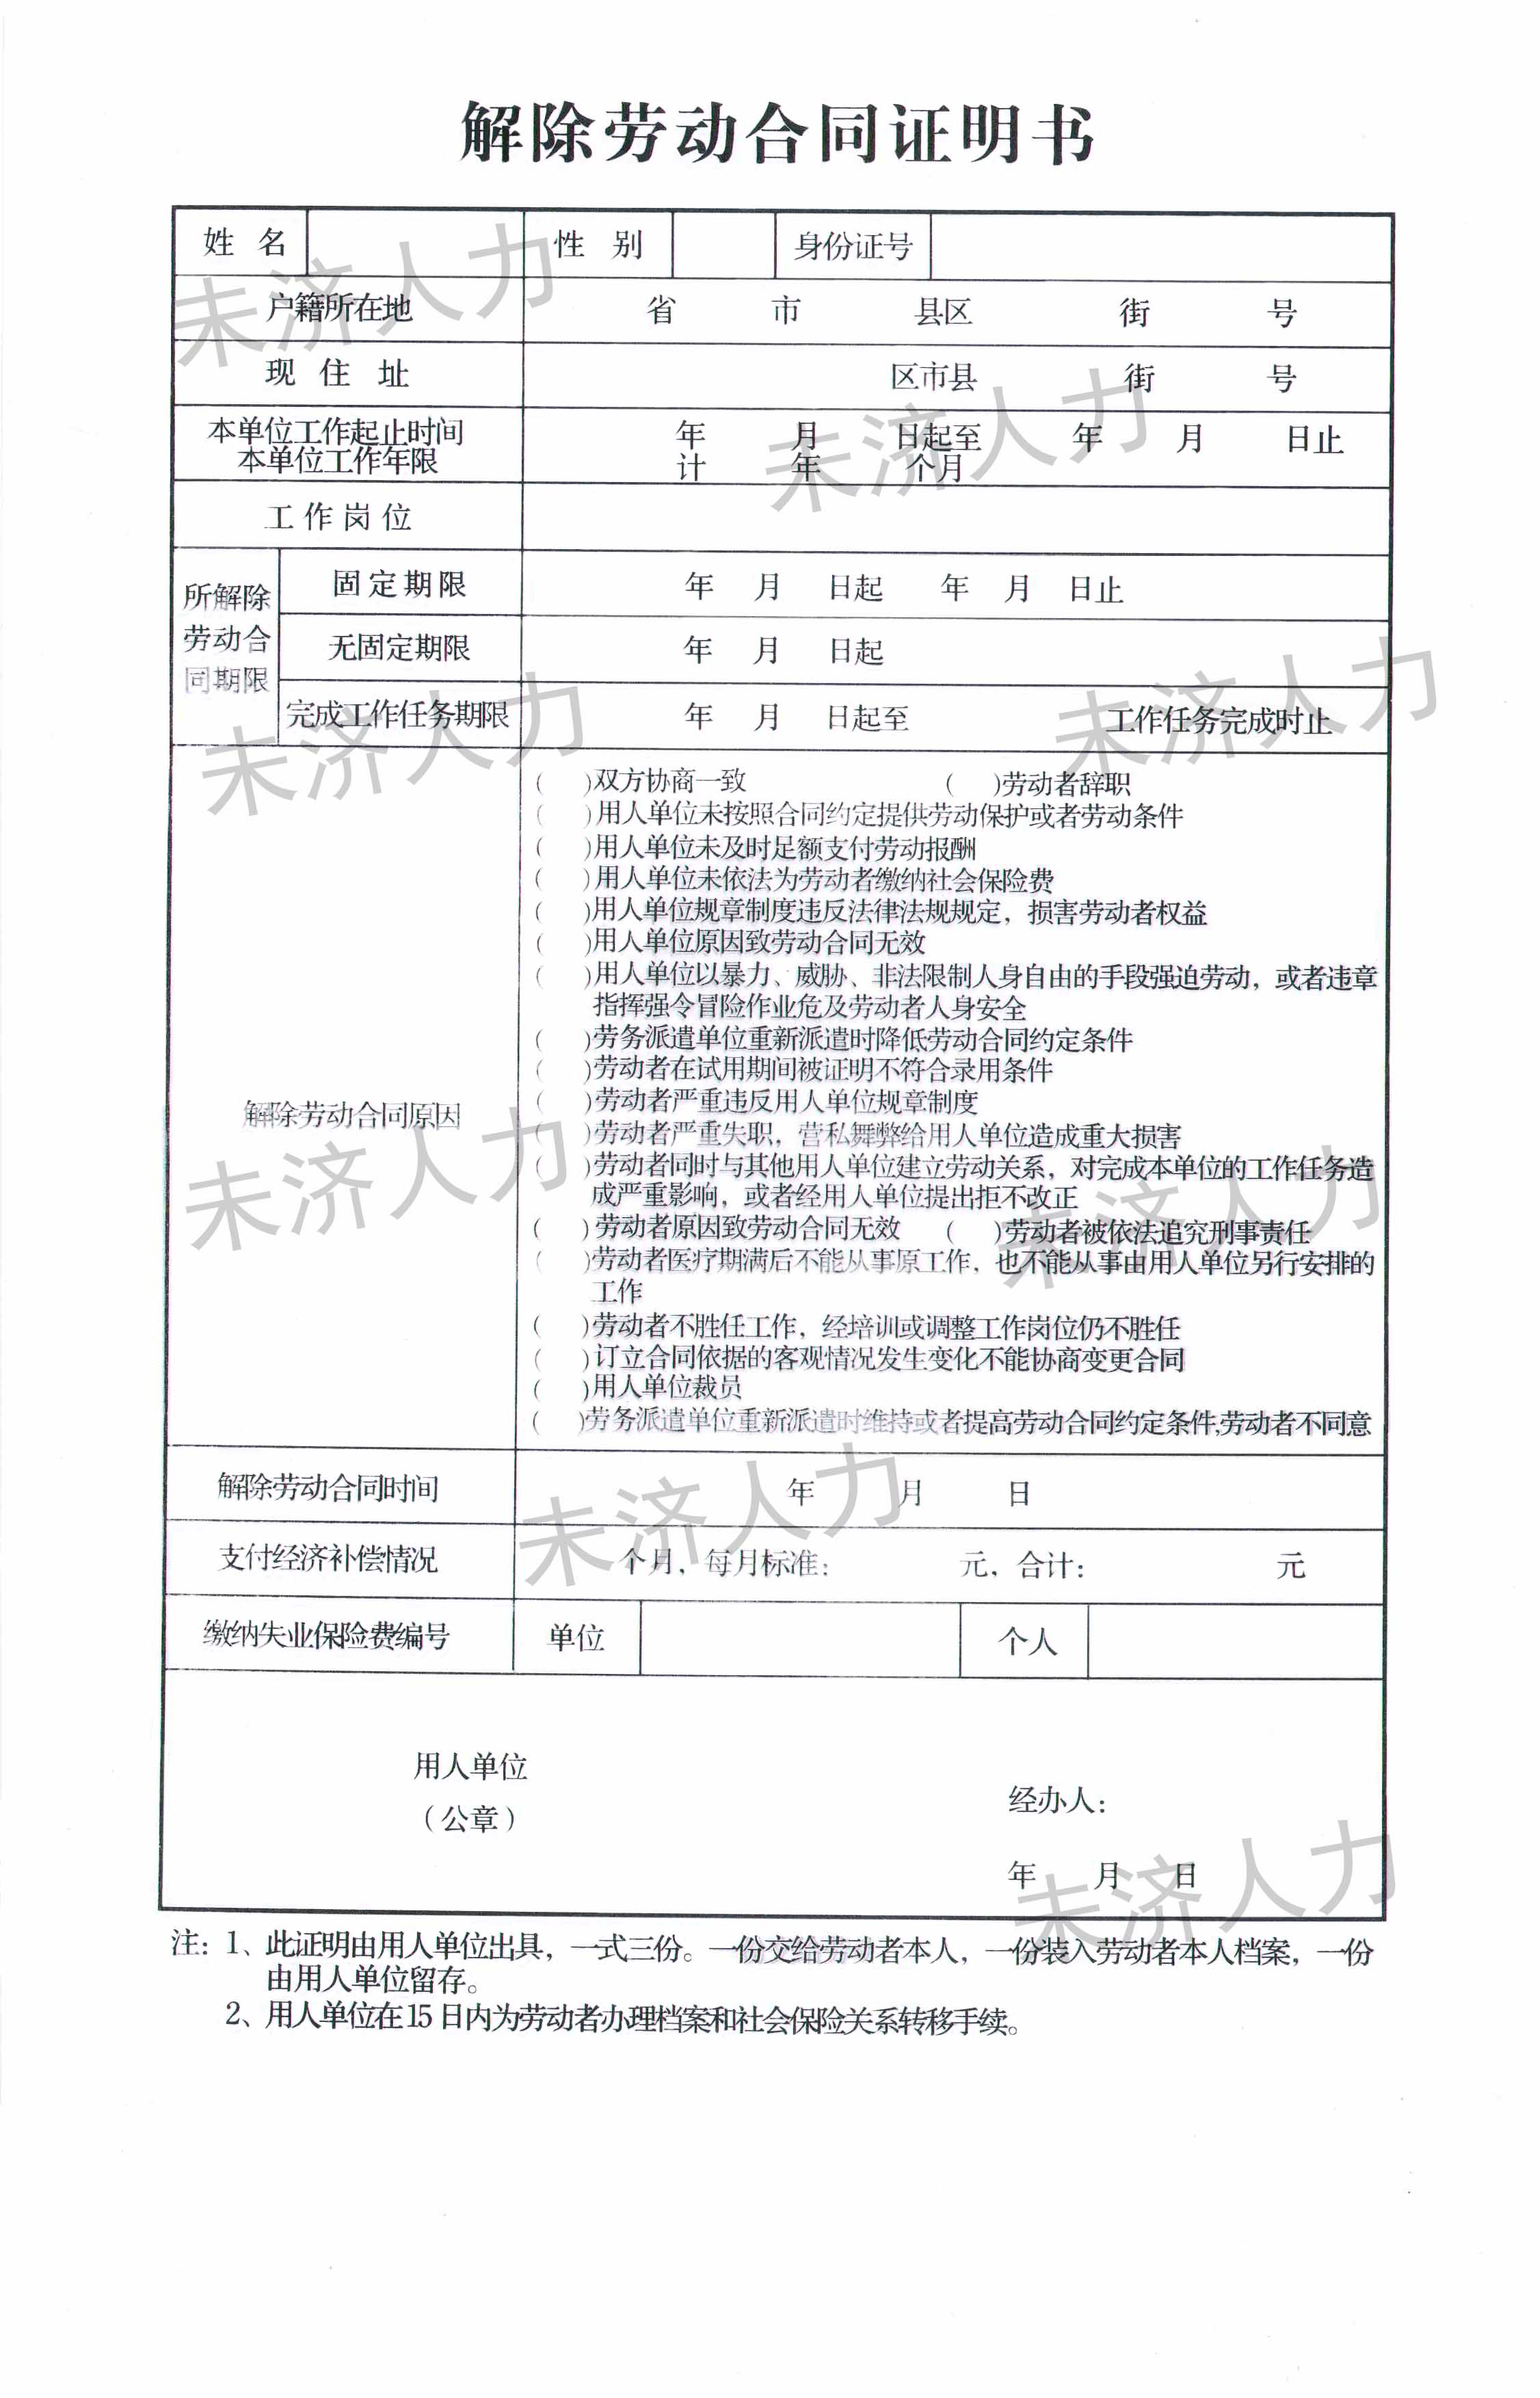 解除劳动合同证明书
姓 名 性 别 身份证号
户籍所在地 省 市 县区 街 号
现 住 址 区市县 街 号
本单位工作起止时间 年 月 日起至 年 月 日止
本单位工作年限 计 年 个月
工作岗位
所解除
劳动合
同期限
固定期限 年 月 日起 年 月 日止
无固定期限 年 月 日起
完成工作任务期限 年 月 日起至 工作任务完成时止
解除劳动合同原因
( )双方协商一致 ( )劳动者辞职
( )用人单位未按照合同约定提供劳动保护或者劳动条件
( )用人单位未及时足额支付劳动报酬
( )用人单位未依法为劳动者缴纳社会保险费
( )用人单位规章制度违反法律法规规定，损害劳动者权益
( )用人单位原因致劳动合同无效
( )用人单位以暴力、威胁、非法限制人身自由的手段强迫劳动，或者违章
指挥强令冒险作业危及劳动者人身安全
( )劳务派遣单位重新派遣时降低劳动合同约定条件
( )劳动者在试用期间被证明不符合录用条件
( )劳动者严重违反用人单位规章制度
( )劳动者严重失职，营私舞弊给用人单位造成重大损害
( )劳动者同时与其他用人单位建立劳动关系，对完成本单位的工作任务造
成严重影响，或者经用人单位提出拒不改正
( )劳动者原因致劳动合同无效 ( )劳动者被依法追究刑事责任
( )劳动者医疗期满后不能从事原工作，也不能从事由用人单位另行安排的
工作
( )劳动者不胜任工作，经培训或调整工作岗位仍不胜任
( )订立合同依据的客观情况发生变化不能协商变更合同
( )用人单位裁员
( )劳务派遣单位重新派遣时维持或者提高劳动合同约定条件,劳动者不同意
解除劳动合同时间 年 月 日
支付经济补偿情况 个月，每月标准： 元，合计： 元
缴纳失业保险费编号 单位 个人
用人单位
（公章）
经办人：
年 月 日
注：1、此证明由用人单位出具，一式三份。一份交给劳动者本人，一份装入劳动者本人档案，一份
由用人单位留存。
2、用人单位在15日内为劳动者办理档案和社会保险关系转移手续。
未济人力
未济人力
未济人力
未济人力
未济人力
未济人力
未济人力
未济人力